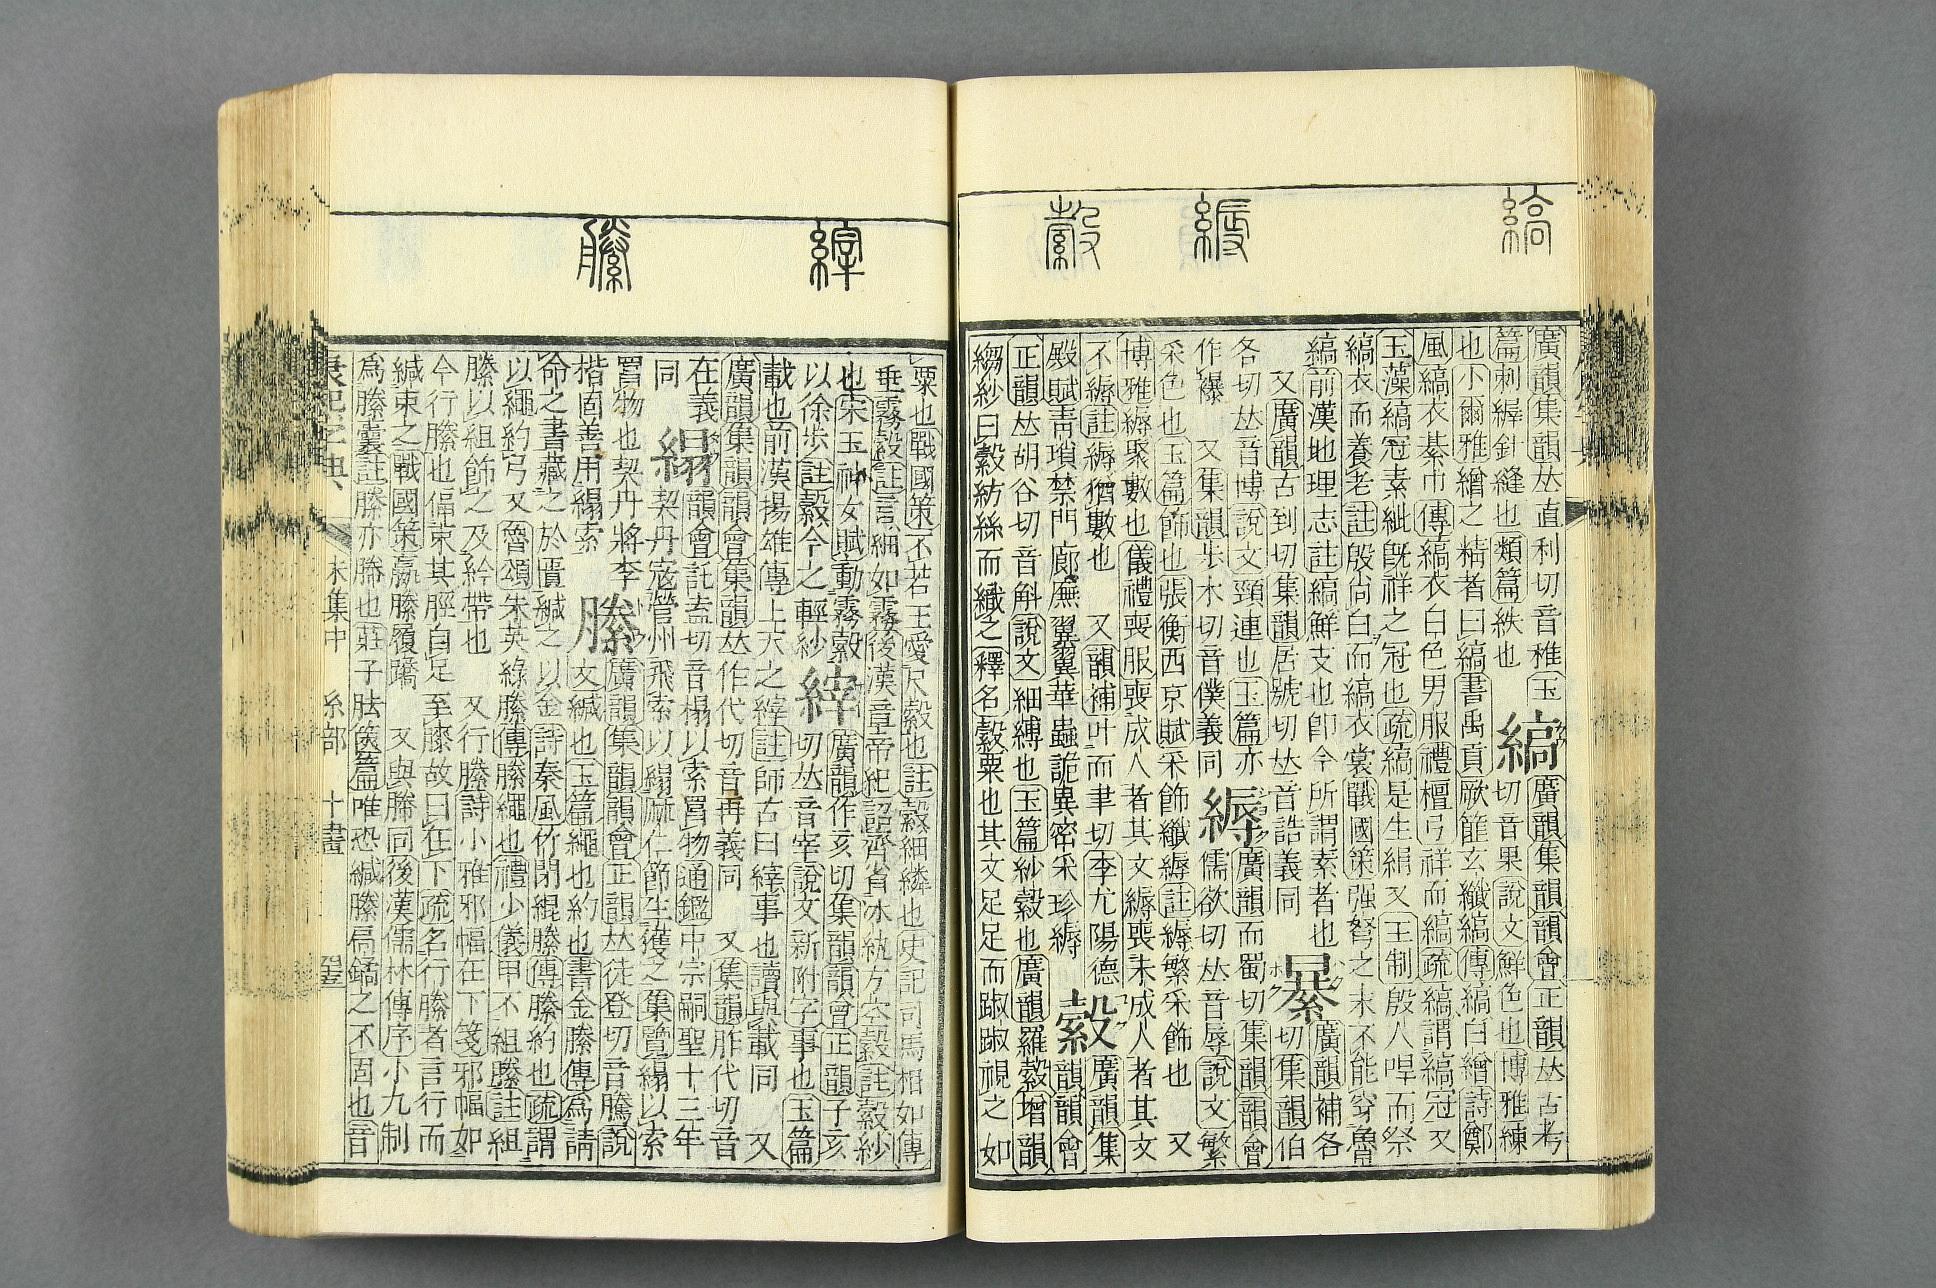 縞
縟
縠
廣韻集韻𠀤直利切音稚玉
篇刺繹針縫也類篇紩也
縞
廣韻集韻韻會正韻𠀤古考
切音杲說文鮮色也博雅練
也小爾雅繒之精者曰縞書禹貢厥篚玄纖縞傳縞白繒詩鄭
風縞衣綦巾傳縞衣白色男服禮檀弓祥而縞疏縞謂縞冠又
玉藻縞冠素紕旣祥之冠也疏縞是生絹又王制殷人哻而祭
縞衣而養老註殷尚白而縞衣裳戰國策强弩之末不能穿魯
縞前漢地理志註縞鮮支也卽今所謂素者也
又廣韻古到切集韻居號切𠀤音誥義同
廣韻補各
切集韻伯
各切𠀤音博說文頸連也玉篇亦
作襮 又集韻步木切音僕義同
縟
廣韻而蜀切集韻韻會
儒欲切𠀤音辱說文繁
采色也玉篇飾也張衡西京賦采飾纖縟註縟繁采飾也 又
博雅縟聚數也儀禮喪服喪成人者其文縟喪未成人者其文
不縟註縟猶數也 又韻補叶而聿切李尤陽德
殿賦靑瑣禁門廊廡翼翼華蟲詭異密采珍縟
縠
廣韻集
韻韻會
正韻𠀤胡谷切音斛說文細縛也玉篇紗縠也廣韻羅縠增韻
縐紗曰縠紡絲而織之釋名縠粟也其文足足而踧踧視之如
縡
縢
粟也戰國策不若王愛尺縠也註縠細繐也史記司馬相如傳
垂霧縠註言細如霧後漢章帝紀詔齊省冰紈方空縠註縠紗
也宋玉神女賦動霧縠
以徐步註縠今之輕紗
縡
廣韻作亥切集韻韻會正韻子亥
切𠀤音宰說文新附字事也玉篇
載也前漢揚雄傳上天之縡註師古曰縡事也讀與載同 又
廣韻集韻韻會集韻𠀤作代切音再義同 又集韻昨代切音
在義
同
䌈
韻會託盍切音榻以索罥物通鑑中宗嗣聖十三年
契丹寇營州飛索以䌈麻仁節生獲之集覽䌈以索
罥物也契丹將李
揩固善用䌈索
縢
廣韻集韻韻會正韻𠀤徒登切音騰說
文緘也玉篇繩也約也書金縢傳爲請
命之書藏之於匱緘之以金詩秦風竹閉緄縢傳縢約也疏謂
以繩約弓又魯頌朱英綠縢傳縢繩也禮少儀甲不組縢註組
縢以組飾之及紟帶也 又行縢詩小雅邪幅在下箋邪幅如
今行縢也偪束其脛自足至膝故曰在下疏名行縢者言行而
緘束之戰國策羸縢履蹻 又與幐同後漢儒林傳序小九制
爲縢囊註縢亦幐也莊子胠篋篇唯恐緘縢扃鐍之不固也音
康熙字典 未集中 糸部 十畫